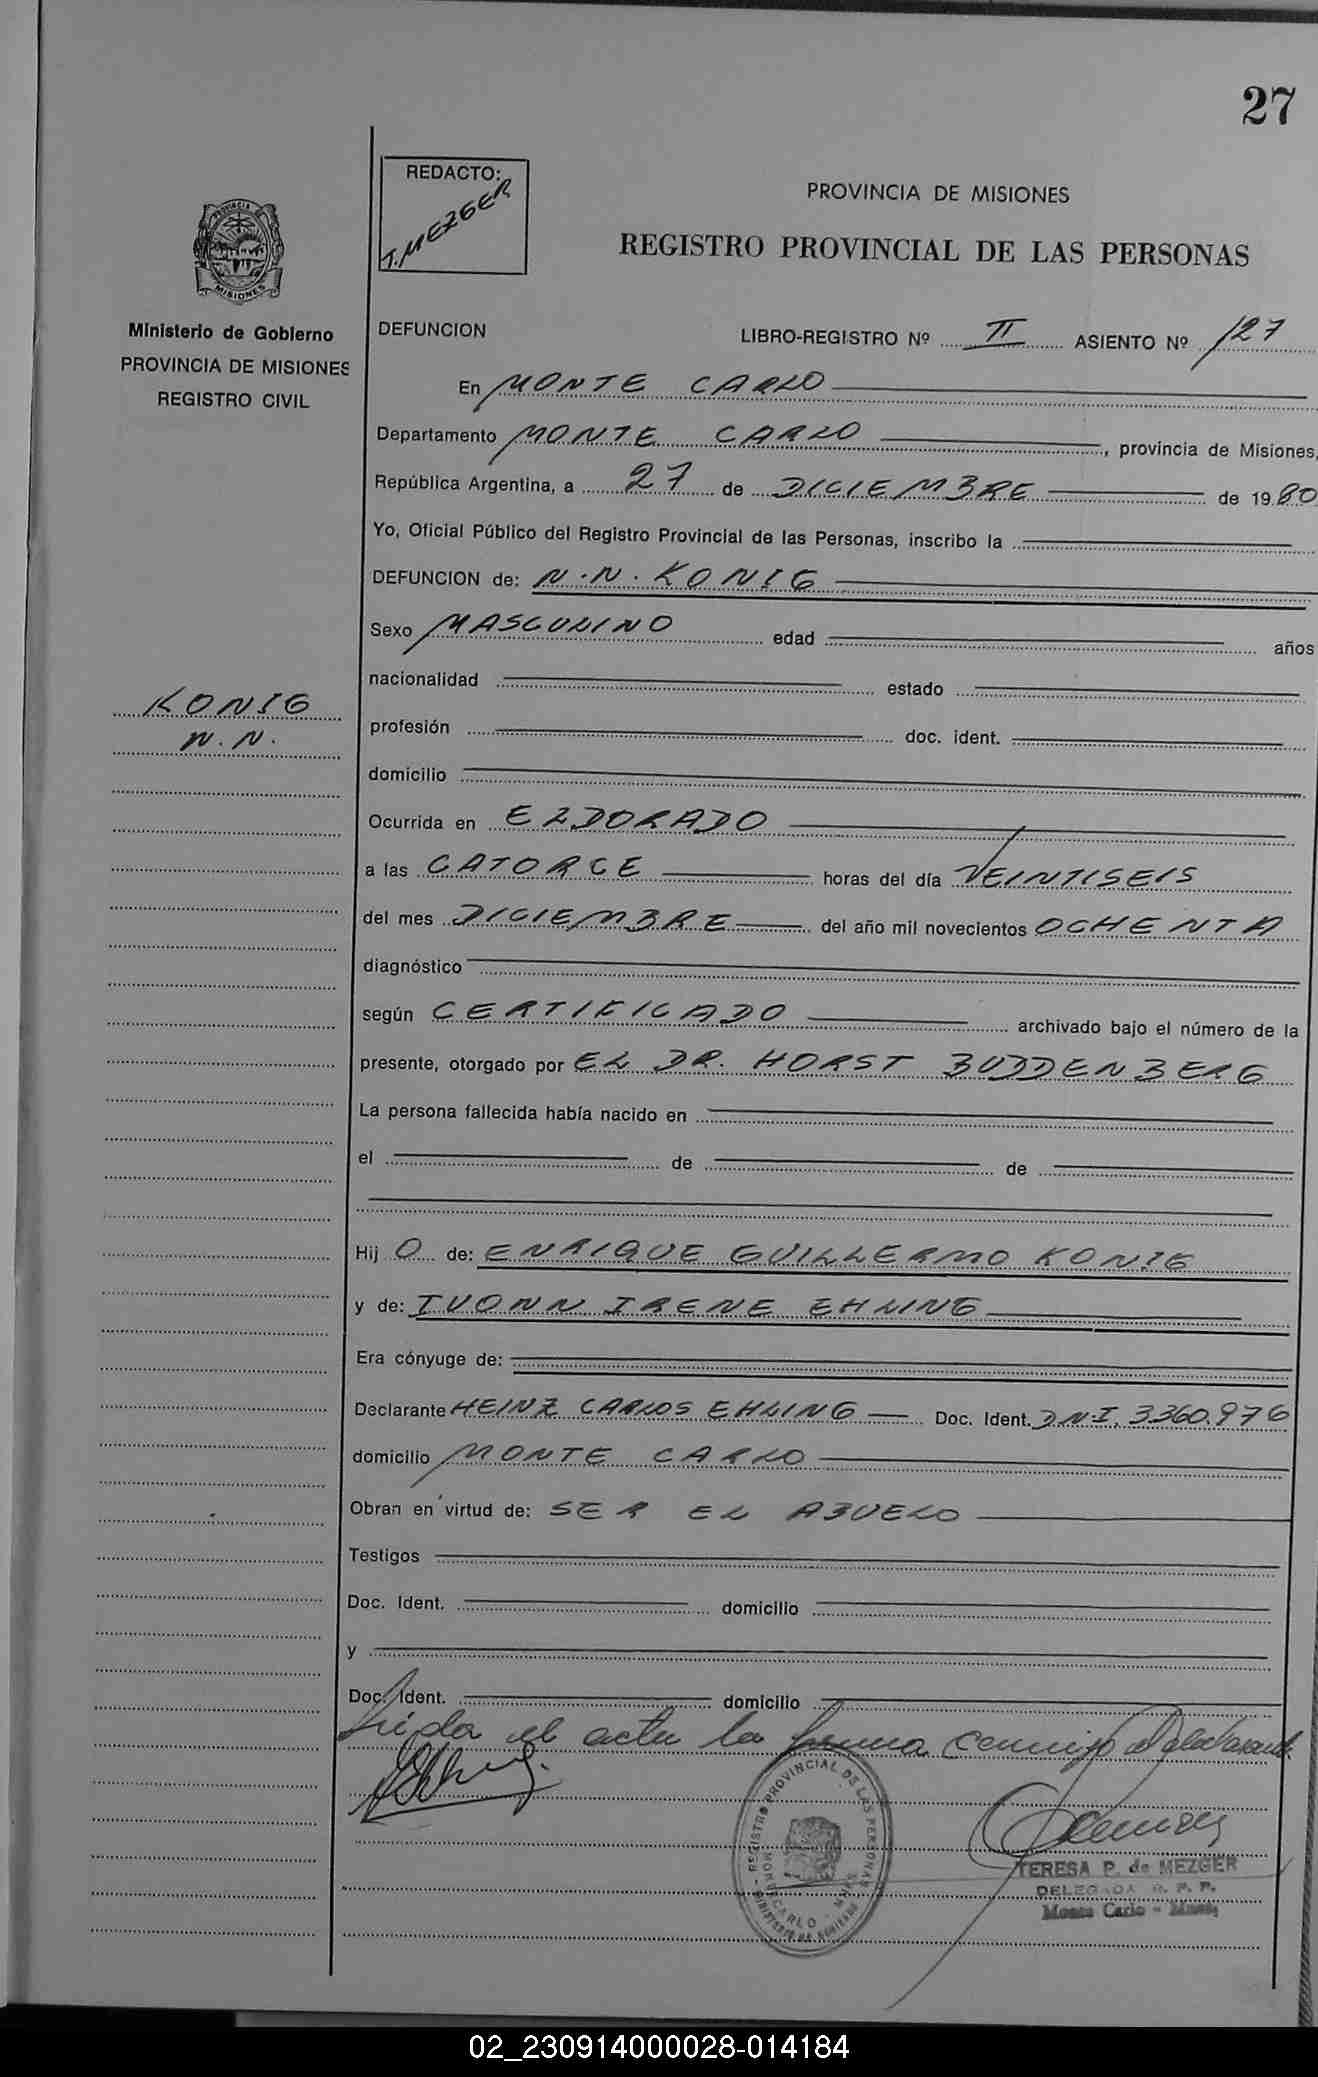 27
REDACTO:
T. MEZGER
PROVINCIA DE MISIONES
REGISTRO PROVINCIAL DE LAS PERSONAS
PROVINCIA DE
MISIONES
Ministerio de Gobierno
PROVINCIA DE MISIONES
REGISTRO CIVIL
DEFUNCION LIBRO-REGISTRO Nº II ASIENTO Nº 127
En MONTE CARLO
Departamento MONTE CARLO, provincia de Misiones,
República Argentina, a 27 de DICIEMBRE de 1980
Yo, Oficial Público del Registro Provincial de las Personas, inscribo la
DEFUNCION de: N.N. KONIG
Sexo MASCULINO edad años
nacionalidad estado
KONIG
N.N.
profesión doc. ident.
domicilio
Ocurrida en ELDORADO
a las CATORCE horas del día VEINTISEIS
del mes DICIEMBRE del año mil novecientos OCHENTA
diagnóstico
según CERTIFICADO archivado bajo el número de la
presente, otorgado por EL DR. HORST BUDDENBERG
La persona fallecida había nacido en
el de de
Hij O de: ENRIQUE GUILLERMO KONIG
y de: IVONN IRENE EHLING
Era cónyuge de:
Declarante HEINZ CARLOS EHLING Doc. Ident. DNI. 3360.976
domicilio MONTE CARLO
Obran en virtud de: SER EL ABUELO
Testigos
Doc. Ident. domicilio
y
Doc. Ident. domicilio
Leida el acta la firma conmigo el declarante.
REGISTRO PROVINCIAL DE LAS PERSONAS
MONTECARLO
TERESA P. de MEZGER
DELEGADA R. P. P.
Monte Carlo - Mnes.
02_230914000028-014184